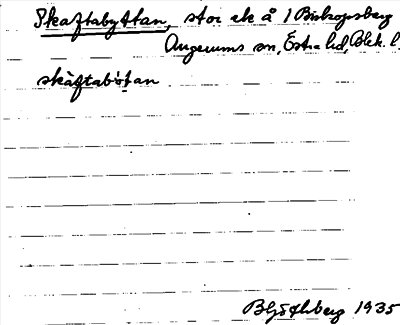 Skaftabyttan, stor ek å 1 Biskopsberg
Augerums sn, Östra hd, Blek. l.
skàftabìtan
Bhj Göthberg 1935